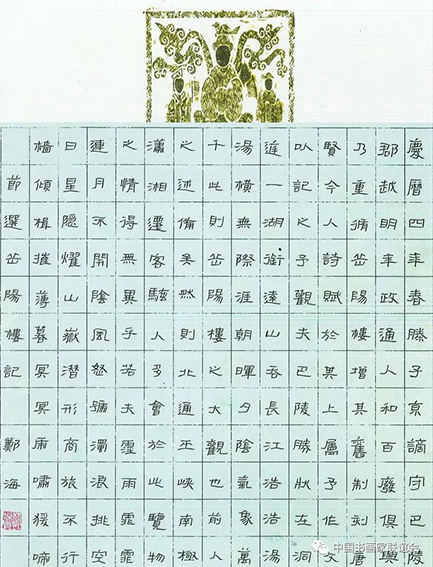 慶曆四年春滕子京謫守巴陵
郡越明年政通人和百廢俱興
乃重脩岳陽樓增其舊制刻唐
賢今人詩賦於其上屬予作文
以記之予觀夫巴陵勝狀在洞
庭一湖銜遠山吞長江浩浩湯
湯橫無際涯朝暉夕陰氣象萬
千此則岳陽樓之大觀也前人
之述備矣然則北通巫峽南極
瀟湘遷客騷人多會於此覽物
之情得無異乎若夫霪雨霏霏
連月不開陰風怒號濁浪排空
日星隱耀山嶽潛形商旅不行
檣傾楫摧薄暮冥冥虎嘯猿啼
節選岳陽樓記 鄭海
中国书画家联谊会